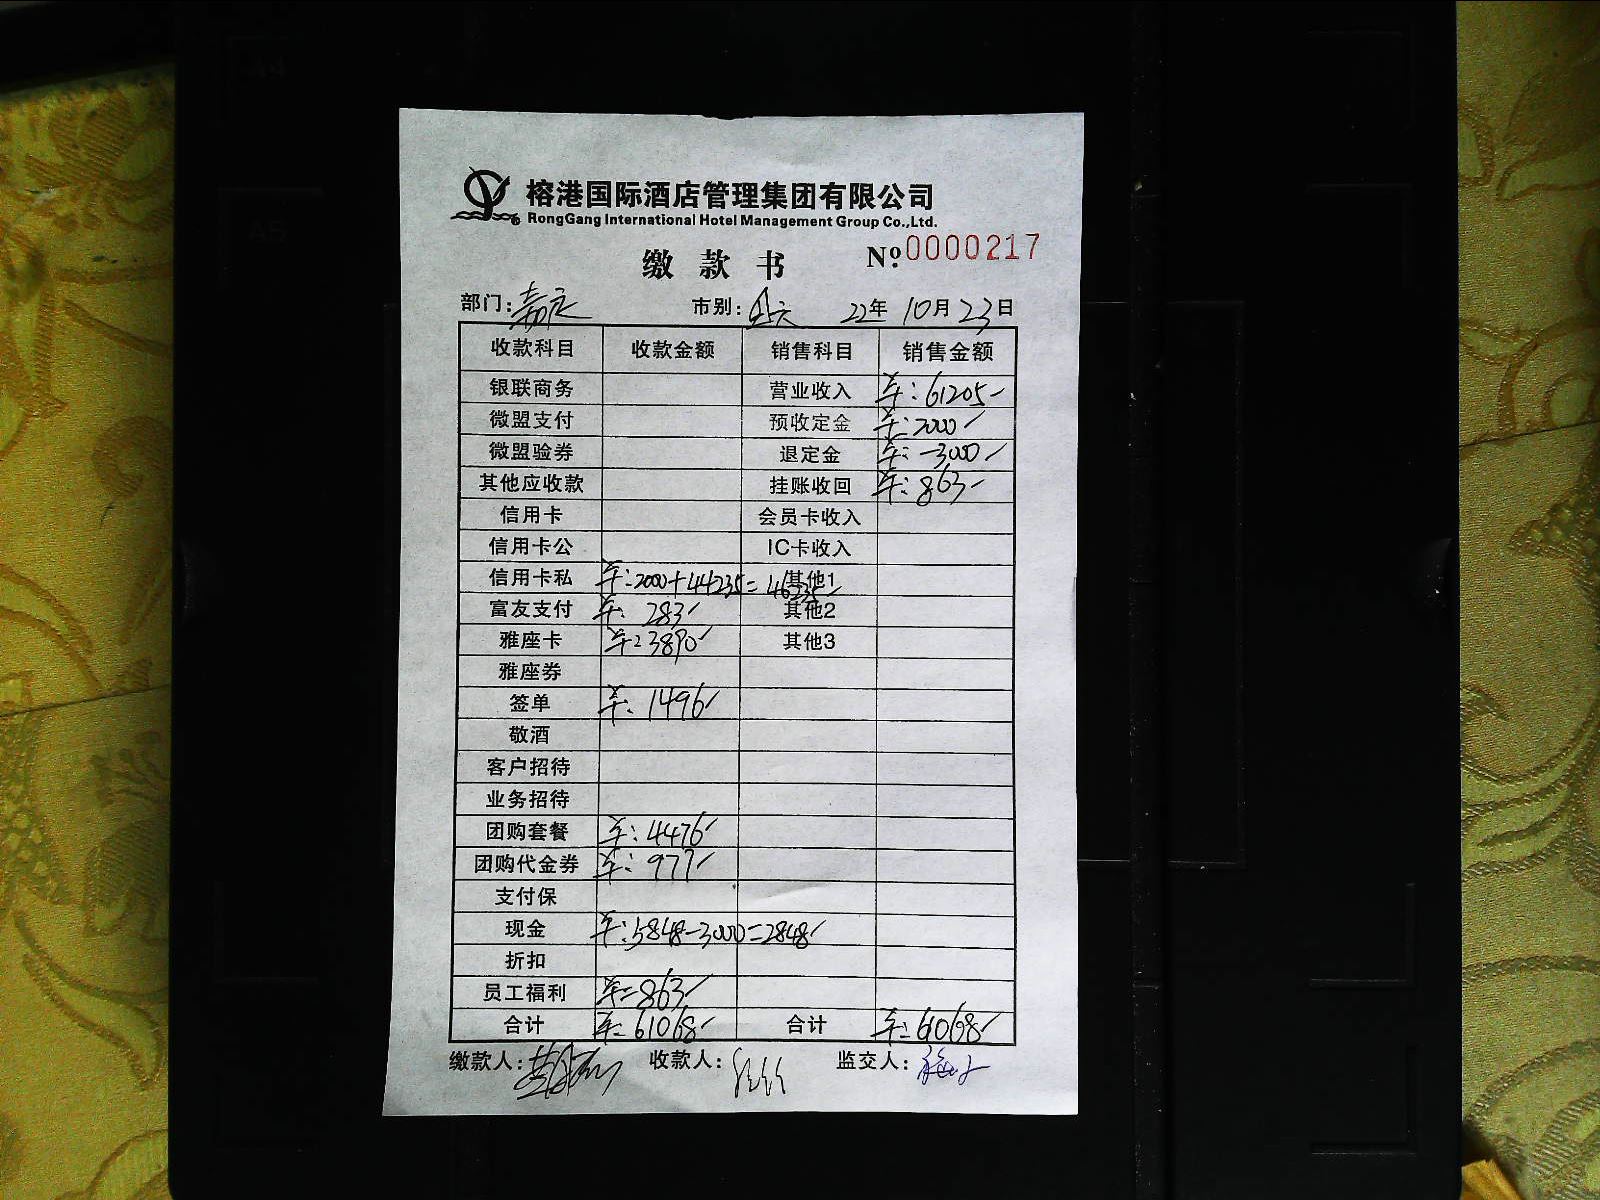 榕港国际酒店管理集团有限公司
RongGang International Hotel Management Group Co.,Ltd.
缴款书 Nº:0000217
部门:嘉定 市别:全天 22年10月23日
收款科目 收款金额 销售科目 销售金额
银联商务 营业收入 ¥:61205
微盟支付 预收定金 ¥:2000
微盟验券 退定金 ¥:-3000
其他应收款 挂账收回 ¥:863
信用卡 会员卡收入
信用卡公 IC卡收入
信用卡私 ¥:2000+44235=46235 其他1
富友支付 ¥:283 其他2
雅座卡 ¥:3890 其他3
雅座券
签单 ¥:1496
敬酒
客户招待
业务招待
团购套餐 ¥:4476
团购代金券 ¥:977
支付保
现金 ¥:5848-3000=2848
折扣
员工福利 ¥:863
合计 ¥:61068 合计 ¥:61068
缴款人: 收款人: 监交人:
A4
A5